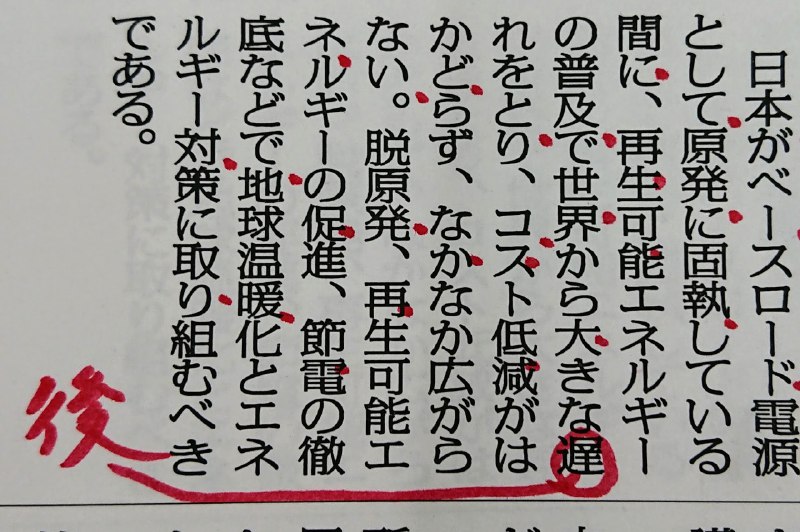 日本がベースロード電源
として原発に固執している
間に、再生可能エネルギー
の普及で世界から大きな遅
れをとり、コスト低減がは
かどらず、なかなか広がら
ない。脱原発、再生可能エ
ネルギーの促進、節電の徹
底などで地球温暖化とエネ
ルギー対策に取り組むべき
である。
後